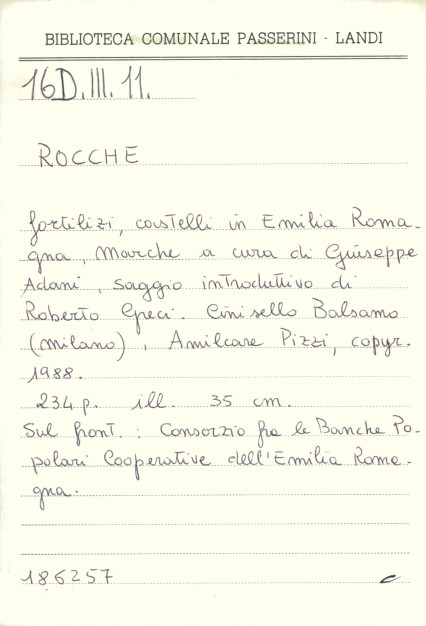 BIBLIOTECA COMUNALE PASSERINI - LANDI
16D.III.11.
ROCCHE
fortilizi, castelli in Emilia Roma-
gna, Marche a cura di Giuseppe
Adani, saggio introduttivo di
Roberto Greci. Cinisello Balsamo
(Milano), Amilcare Pizzi, copyr.
1988.
234 p. ill. 35 cm.
Sul front. : Consorzio fra le Banche Po-
polari Cooperative dell'Emilia Roma-
gna.
186257 c